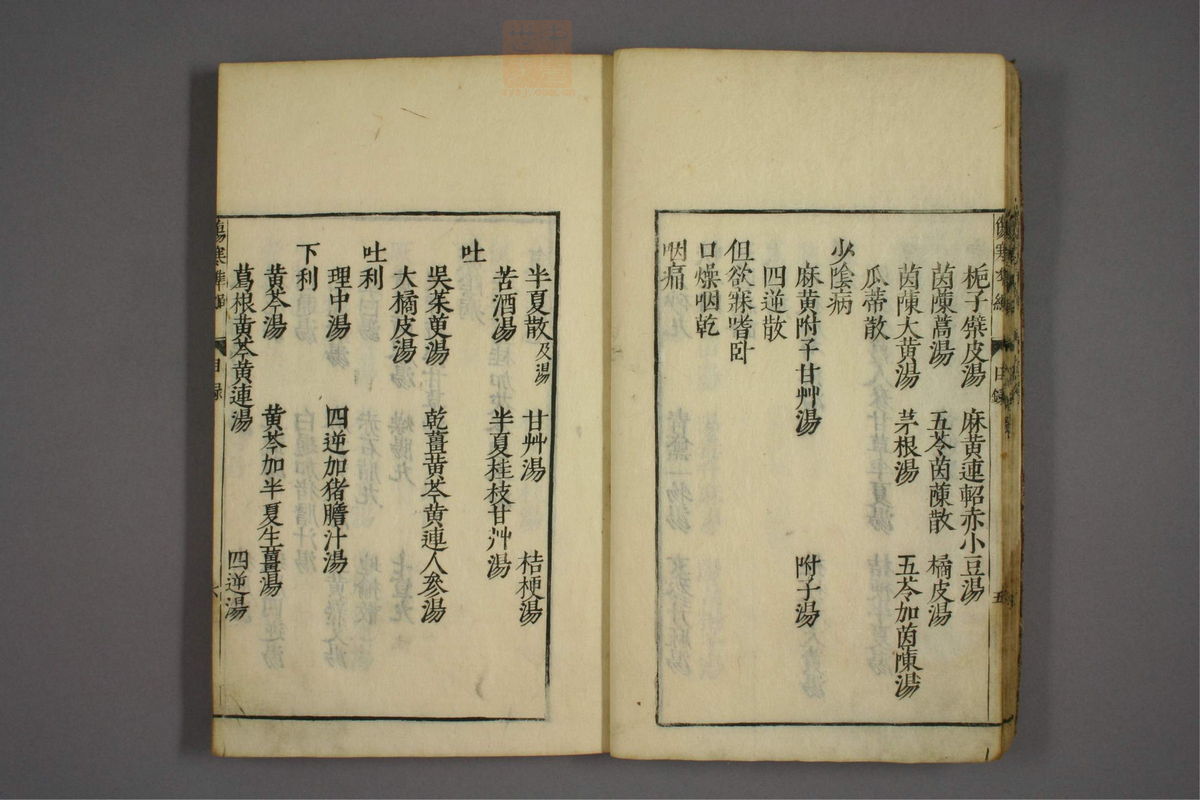 梔子蘗皮湯 麻黃連軺赤小豆湯
茵蔯蒿湯 五苓茵蔯散 橘皮湯
茵蔯大黃湯 茅根湯 五苓加茵蔯湯
瓜蒂散
少陰病
麻黃附子甘艸湯 附子湯
四逆散
但欲寐嗜卧
口燥咽乾
咽痛
半夏散及湯 甘艸湯 桔梗湯
苦酒湯 半夏桂枝甘艸湯
吐
吳茱萸湯 乾薑黃芩黃連人參湯
大橘皮湯
吐利
理中湯 四逆加猪膽汁湯
下利
黃芩湯 黃芩加半夏生薑湯
葛根黃芩黃連湯 四逆湯
傷寒準繩 目録